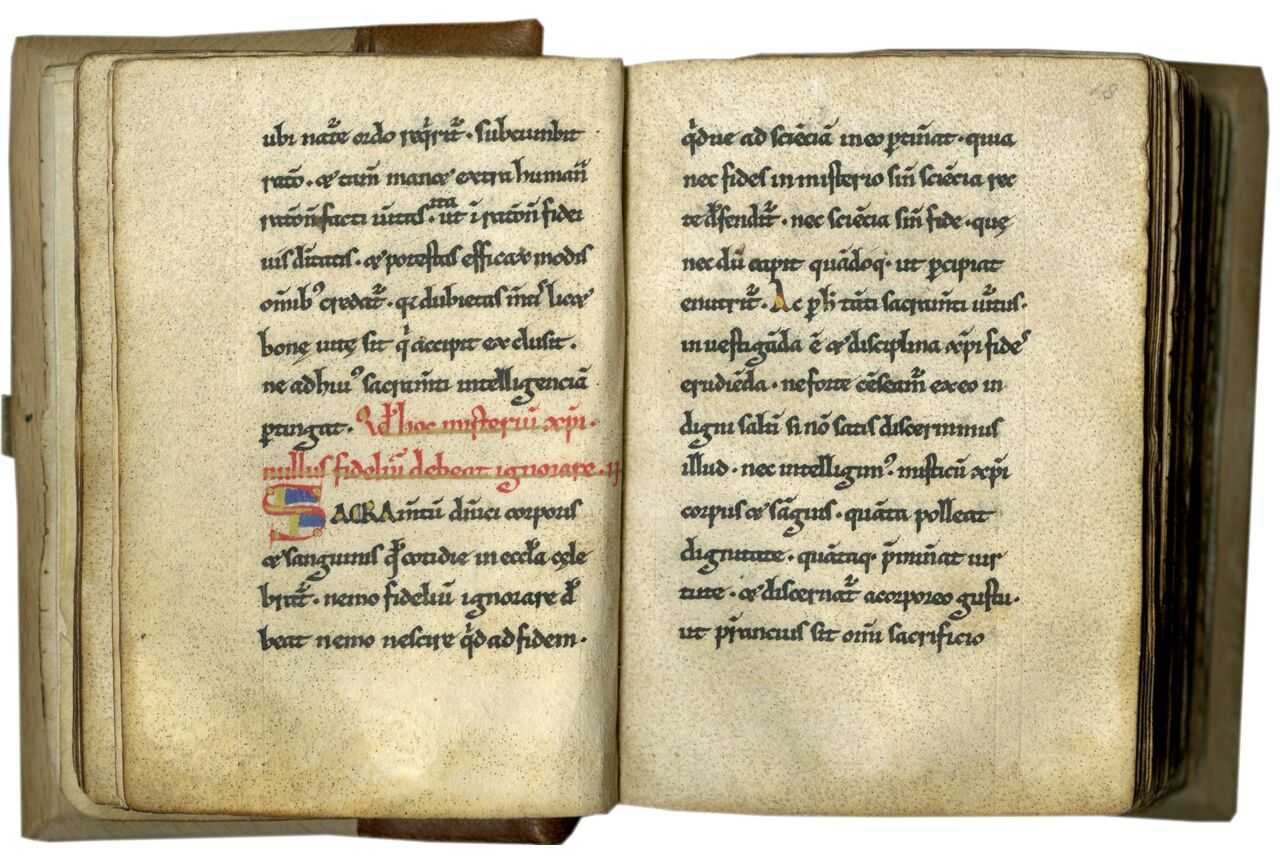 ubi nat̄e ordo req̇rit̄. subcumbit
rat̄o. ⁊ tam̄ manæ extra humanā
ratōn̄ facti ūitas. ita ut ī ratōn̄ fidei
uis diūtatis. ⁊ potestas efficax modis
om̄ib᾽ credat̄. qr dubietas m̄tis licæ
bonę uitę sit q̇ accipit excłusit.
ne ad hui᾽ sacram̄ti intelligenciā
ꝑtingat. Qd̄ hoc misteriū xp̄i.
nullus fideliū debeat ignorare. ii
SACRAm̄tū dn̄ici corporis
⁊ sanguinis qd̄ cotidie in eccl̄a cęle
brat̄. nemo fideliū ignorare de
beat nemo nescire q̇d ad fidem.
q̇due ad sciēciā in eo ꝑtin̄at. quia
nec fides in misterio sin̄ sciēcia rec
te defendit̄. nec sciēcia sin̄ fide. quę
nec dū capit quādoq. ut ꝑcipiat
enutrit̄. Ac ꝑ h̄ tāti sacram̄ti uirtus.
inuestigāda ē ⁊ disciplina xp̄i fides
erudiēda. ne forte cēseam̄ ex eo in
digni saltī si nō satis discernimus
illud. nec intelligim᾽. misticū xp̄i
corpus ⁊ sāguis. quāta polleat
dignitate. quātaq. p̄min̄at uir
tute. ⁊ discernat̄ a corporeo gustu.
ut p̄stancius sit om̄i sacrificio